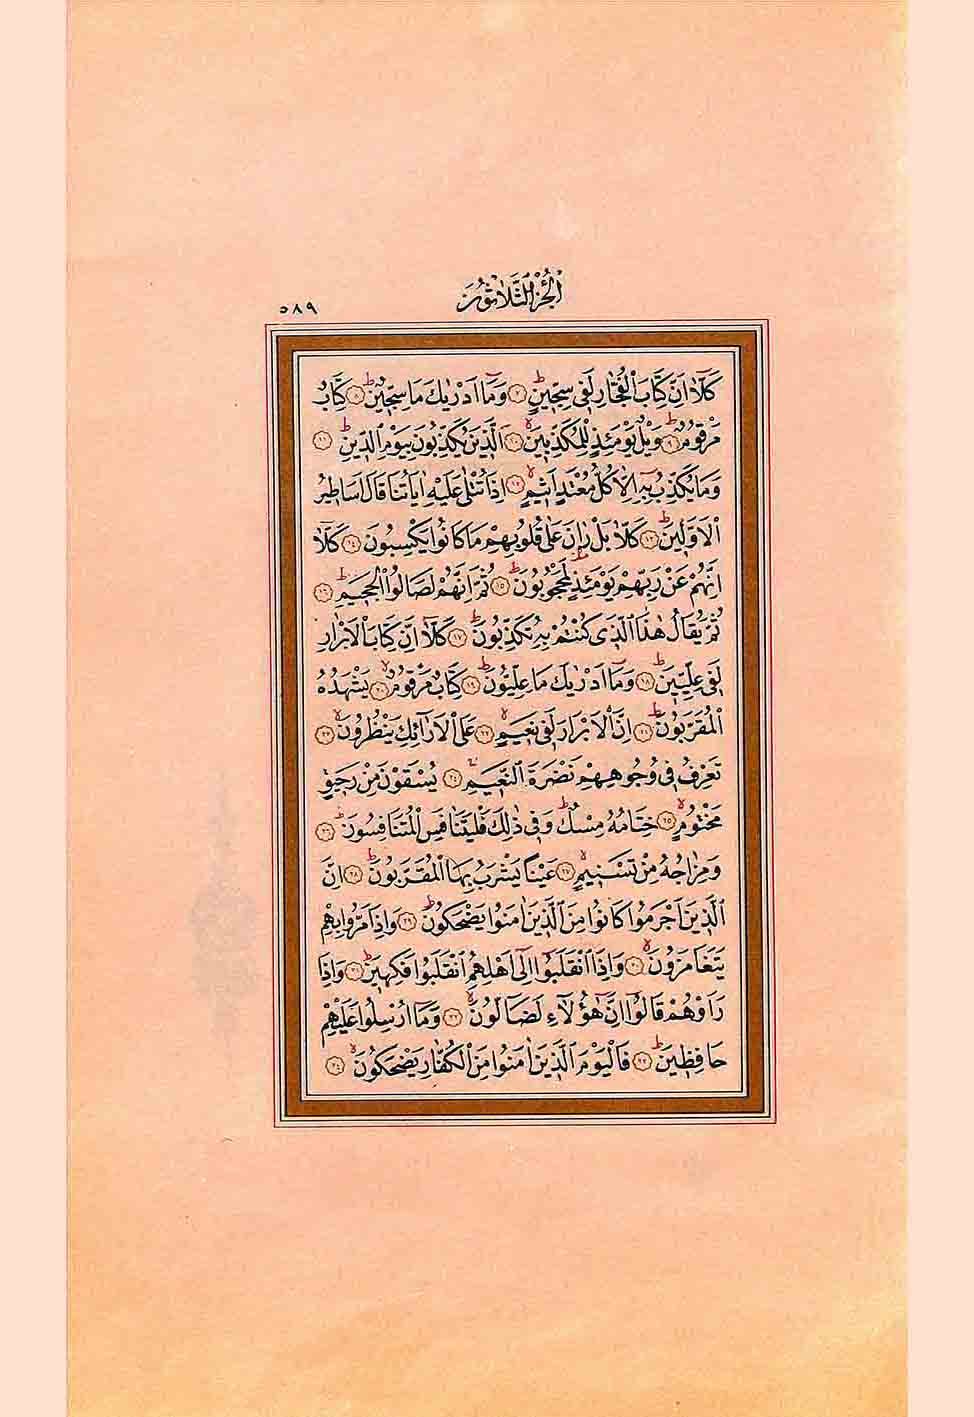 الجزء الثلاثون
٥٨٩
كَلَّٓا اِنَّ كِتَابَ الْفُجَّارِ لَفٖى سِجّٖينٍؕ ﴿٧﴾ وَمَٓا اَدْرٰيكَ مَا سِجّٖينٌؕ ﴿٨﴾ كِتَابٌ
مَرْقُومٌؕ ﴿٩﴾ وَيْلٌ يَوْمَئِذٍ لِلْمُكَذِّبٖينَۙ ﴿١٠﴾ اَلَّذٖينَ يُكَذِّبُونَ بِيَوْمِ الدّٖينِؕ ﴿١١﴾
وَمَا يُكَذِّبُ بِهٖٓ اِلَّا كُلُّ مُعْتَدٍ اَثٖيمٍۙ ﴿١٢﴾ اِذَا تُتْلٰى عَلَيْهِ اٰيَاتُنَا قَالَ اَسَاطٖيرُ
الْاَوَّلٖينَؕ ﴿١٣﴾ كَلَّا بَلْ رَانَ عَلٰى قُلُوبِهِمْ مَا كَانُوا يَكْسِبُونَ ﴿١٤﴾ كَلَّٓا
اِنَّهُمْ عَنْ رَبِّهِمْ يَوْمَئِذٍ لَمَحْجُوبُونَؕ ﴿١٥﴾ ثُمَّ اِنَّهُمْ لَصَالُوا الْجَحٖيمِؕ ﴿١٦﴾
ثُمَّ يُقَالُ هٰذَا الَّذٖى كُنْتُمْ بِهٖ تُكَذِّبُونَؕ ﴿١٧﴾ كَلَّٓا اِنَّ كِتَابَ الْاَبْرَارِ
لَفٖى عِلِّيّٖينَؕ ﴿١٨﴾ وَمَٓا اَدْرٰيكَ مَا عِلِّيُّونَؕ ﴿١٩﴾ كِتَابٌ مَرْقُومٌۙ ﴿٢٠﴾ يَشْهَدُهُ
الْمُقَرَّبُونَؕ ﴿٢١﴾ اِنَّ الْاَبْرَارَ لَفٖى نَعٖيمٍۙ ﴿٢٢﴾ عَلَى الْاَرَٓائِكِ يَنْظُرُونَۙ ﴿٢٣﴾
تَعْرِفُ فٖى وُجُوهِهِمْ نَضْرَةَ النَّعٖيمِۚ ﴿٢٤﴾ يُسْقَوْنَ مِنْ رَحٖيقٍ
مَخْتُومٍۙ ﴿٢٥﴾ خِتَامُهُ مِسْكٌؕ وَفٖى ذٰلِكَ فَلْيَتَنَافَسِ الْمُتَنَافِسُونَؕ ﴿٢٦﴾
وَمِزَاجُهُ مِنْ تَسْنٖيمٍۙ ﴿٢٧﴾ عَيْنًا يَشْرَبُ بِهَا الْمُقَرَّبُونَؕ ﴿٢٨﴾ اِنَّ
الَّذٖينَ اَجْرَمُوا كَانُوا مِنَ الَّذٖينَ اٰمَنُوا يَضْحَكُونَؗ ﴿٢٩﴾ وَاِذَا مَرُّوا بِهِمْ
يَتَغَامَزُونَۙ ﴿٣٠﴾ وَاِذَا انْقَلَبُٓوا اِلٰٓى اَهْلِهِمُ انْقَلَبُوا فَكِهٖينَؕ ﴿٣١﴾ وَاِذَا
رَاَوْهُمْ قَالُٓوا اِنَّ هٰٓؤُلَٓاءِ لَضَٓالُّونَۙ ﴿٣٢﴾ وَمَٓا اُرْسِلُوا عَلَيْهِمْ
حَافِظٖينَؕ ﴿٣٣﴾ فَالْيَوْمَ الَّذٖينَ اٰمَنُوا مِنَ الْكُفَّارِ يَضْحَكُونَۙ ﴿٣٤﴾